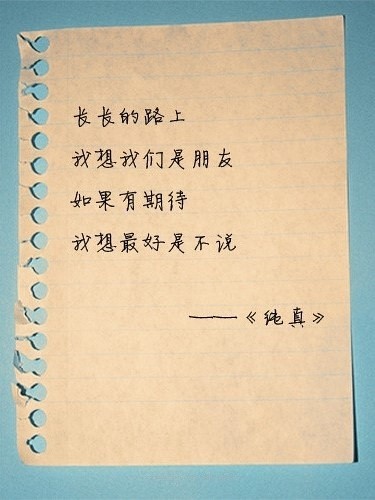 长长的路上
我想我们是朋友
如果有期待
我想最好是不说
——《纯真》